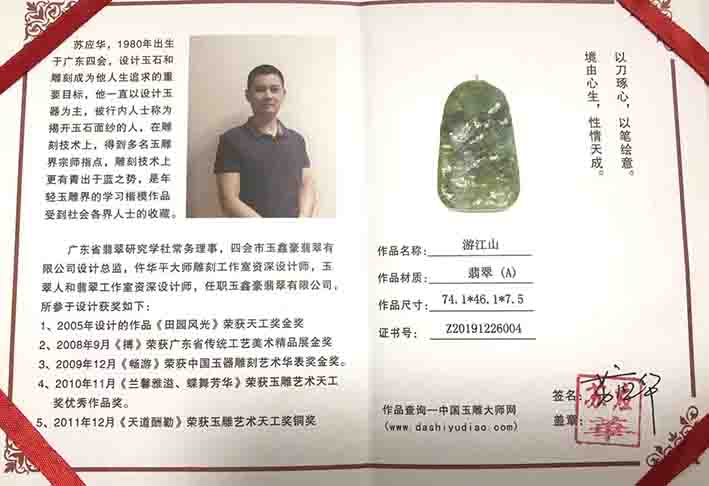 苏应华，1980年出生
于广东四会，设计玉石和
雕刻成为他人生追求的重
要目标，他一直以设计玉
器为主，被行内人士称为
揭开玉石面纱的人，在雕
刻技术上，得到多名玉雕
界宗师指点，雕刻技术上
更有青出于蓝之势，是年
轻玉雕界的学习楷模作品
受到社会各界人士的收藏。
广东省翡翠研究学社常务理事，四会市玉鑫豪翡翠有
限公司设计总监，仵华平大师雕刻工作室资深设计师，玉
翠人和翡翠工作室资深设计师，任职玉鑫豪翡翠有限公司。
所参于设计获奖如下：
1、2005年设计的作品《田园风光》荣获天工奖金奖
2、2008年9月《搏》荣获广东省传统工艺美术精品展金奖
3、2009年12月《畅游》荣获中国玉器雕刻艺术华表奖金奖。
4、2010年11月《兰馨雅溢、蝶舞芳华》荣获玉雕艺术天工
奖优秀作品奖。
5、2011年12月《天道酬勤》荣获玉雕艺术天工奖铜奖
以刀琢心，以笔绘意。
境由心生，性情天成。
作品名称：游江山
作品材质：翡翠（A）
作品尺寸：74.1*46.1*7.5
证书号：Z20191226004
签名：苏应华
盖章：苏应華
作品查询—中国玉雕大师网
(www.dashiyudiao.com)